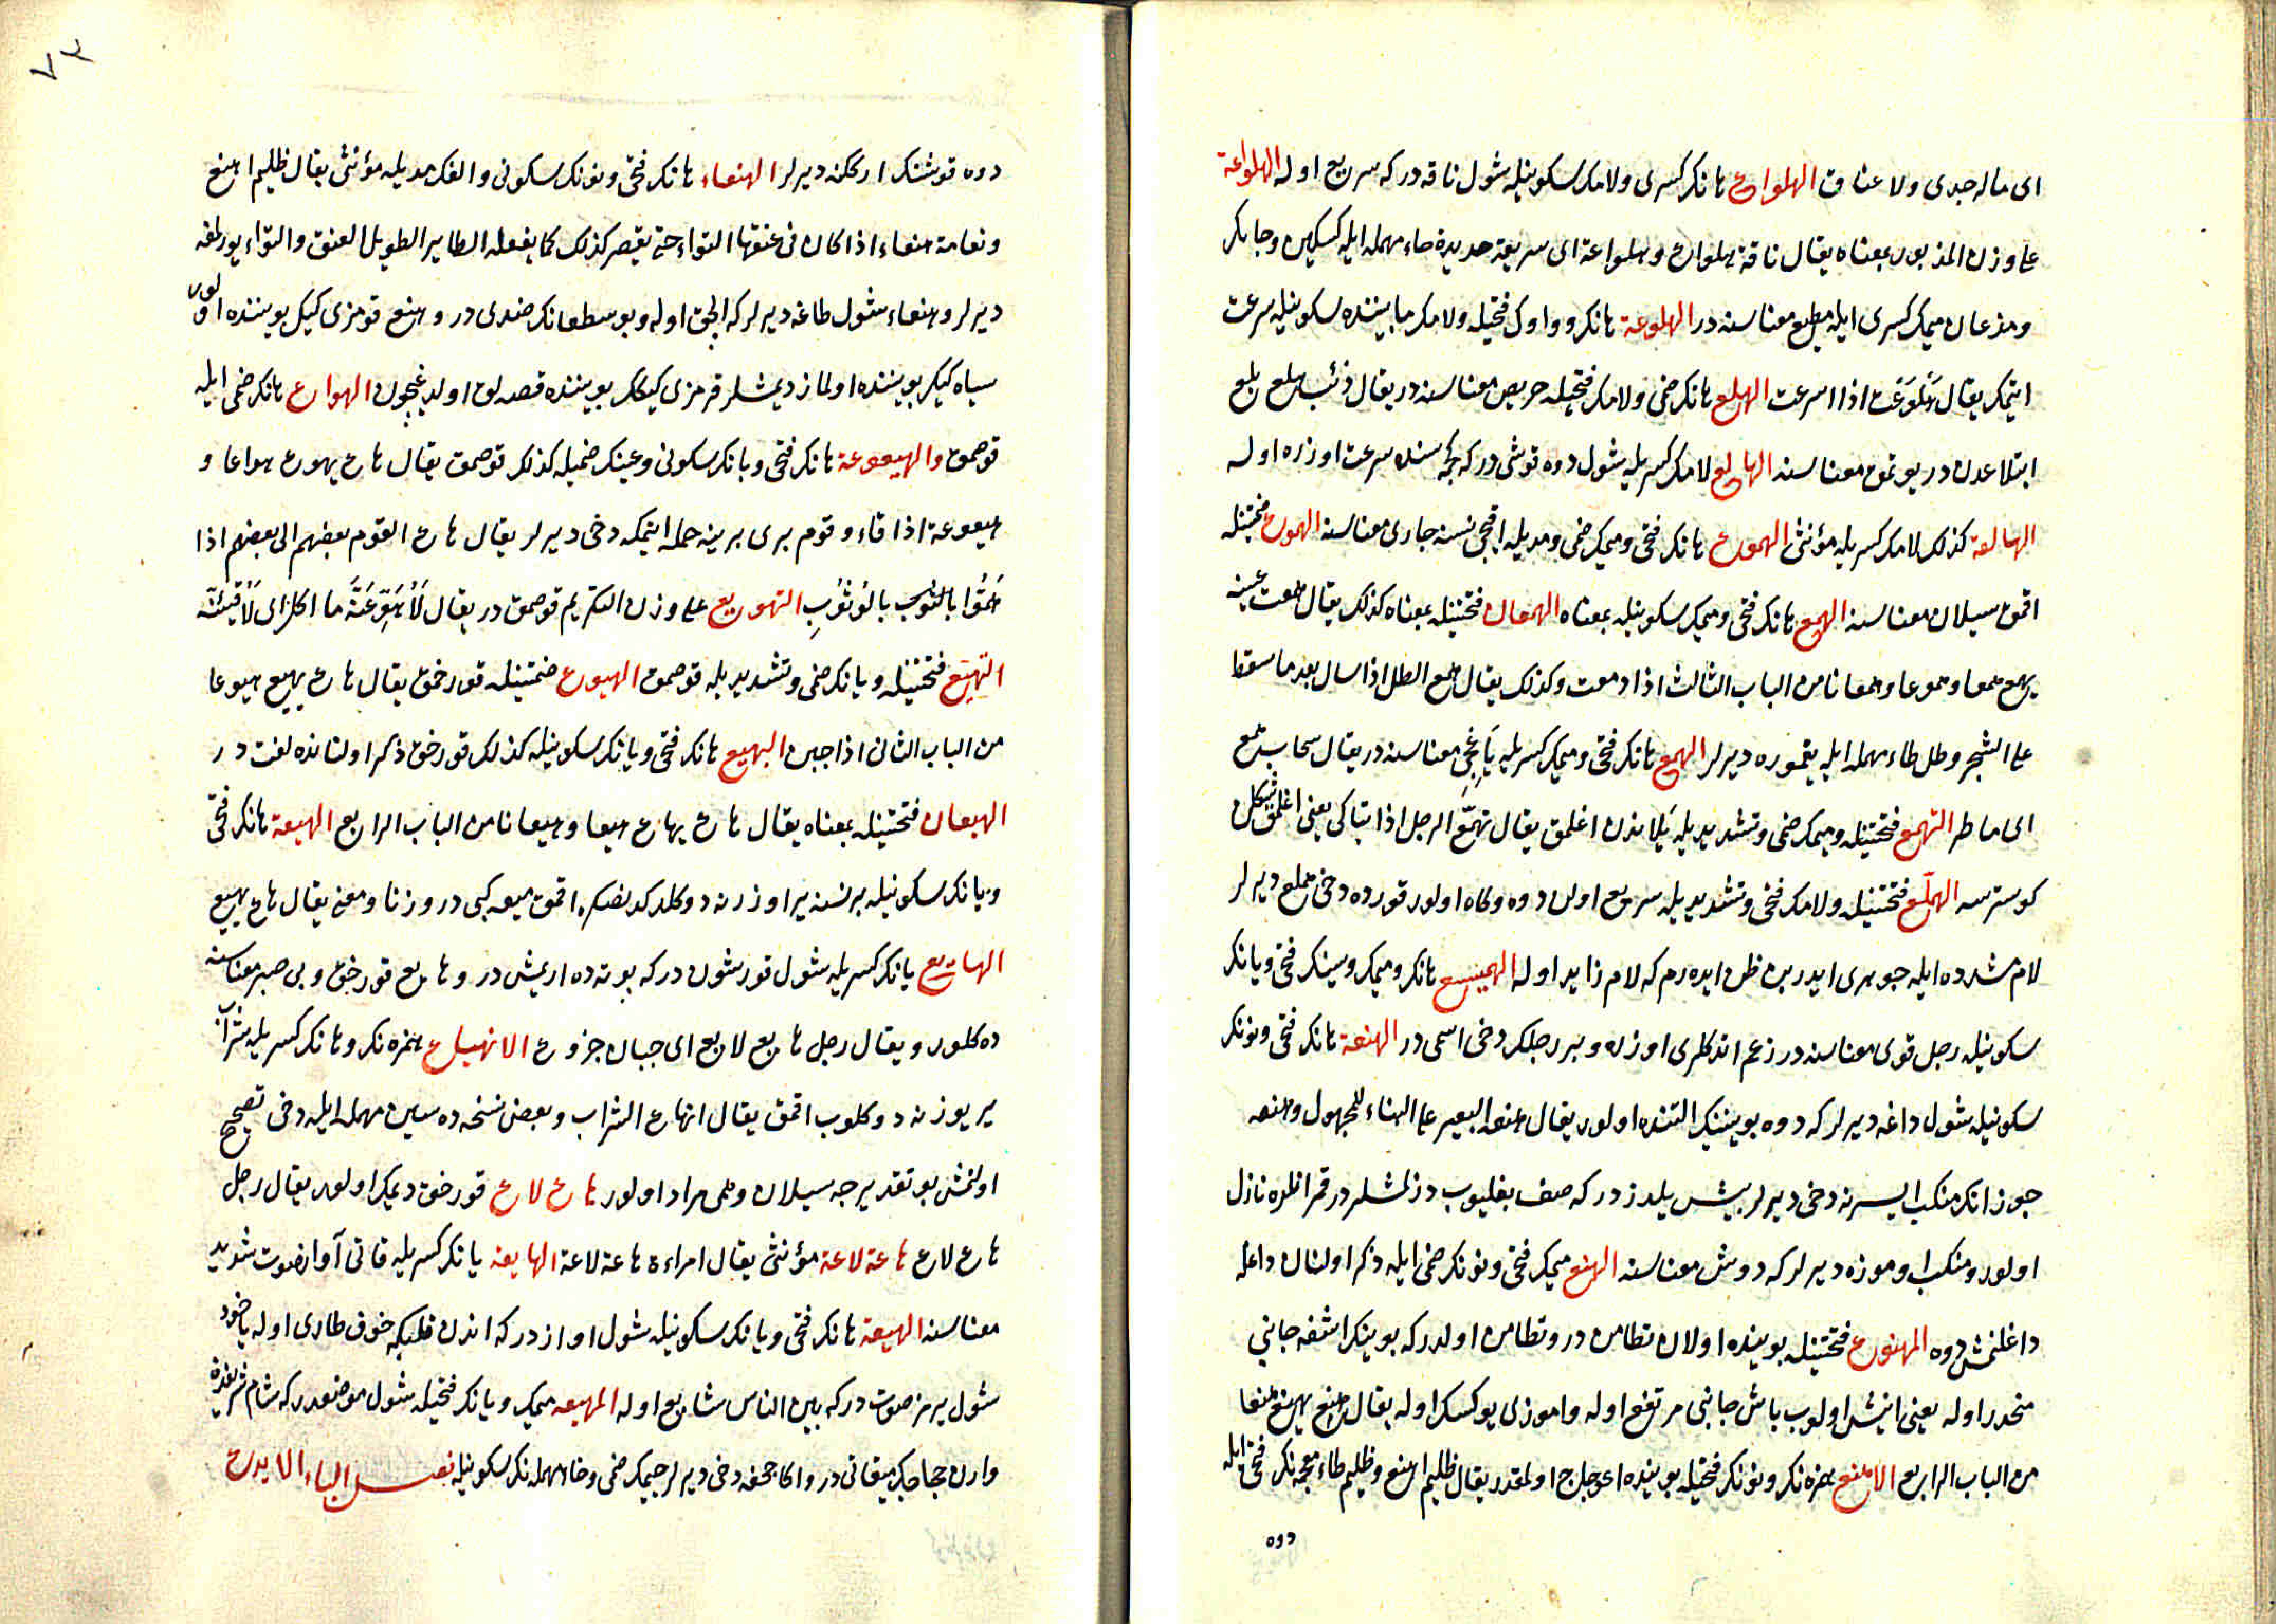 ای ماله جدی ولا عناق الهلواع هانك كسری ولامك سكونیله شول ناقه دركه سریع اوله الهلواعة
علی وزن المذبور بمعناه یقال ناقة هلواع وهلواعة ای سریعة حدیدة حاء مهمله ایله كسكین وجابك
ومذعان میمك كسری ایله مطیع معناسنه در الهلوعة هانك وواوك فتحیله ولامك مابیننده سكونیله سرعت
ایتمك یقال هَلْوَعَت اذا اسرعت الهلع هانك ضمی ولامك فتحیله حریص معناسنه در یقال ذئب هلع بلع
ابتلاعدن در یوتمق معناسنه الهالع لامك كسریله شول دوه قوشی دركه كچمسنده سرعت اوزره اوله
الهالعة كذلك لامك كسریله مؤنثی الهموع هانك فتحی ومیمك ضمی ومدیله اقیجی نسنه جاری معناسنه الهموع ضمتینله
اقمق سیلان معناسنه الهمع هانك فتحی ومیمك سكونیله بمعناه الهمعان فتحتینله بمعناه كذلك یقال همعت عینه
یهمع همعا وهموعا وهمعانا من الباب الثالث اذا دمعت وكذلك یقال همع الطل اذا سال بعد ما سقط
علی الشجر وطل طاء مهمله ایله یغموره دیرلر الهمع هانك فتحی ومیمك كسریله یَاغِجِی معناسنه در یقال سحاب همع
ای ماطر التهمع فتحتینله ومیمك ضمی وتشدیدیله یَلاندن اغلمق یقال تهمّع الرجل اذا تباكی یعنی اغلمق شكلن
كوسترسه الهملّع فتحتینله ولامك فتحی وتشدیدیله سریع اولن دوه وكاه اولور قورده دخی هملع دیرلر
لام مشدده ایله جوهری ایدر بن ظن ایده رم كه لام زاید اوله الهمیسع هانك ومیمك وسینك فتحی ویانك
سكونیله رجل قوی معناسنه در زعم اندكلری اوزره وبر رجلك دخی اسمی در الهنعة هانك فتحی ونونك
سكونیله شول داغه دیرلر كه دوه بویننك التنده اولور یقال هنعه البعیر علی البناء للمجهول وهنعه
جوزانك منكب ایسرنه دخی دیرلر بیش یلدزدر كه صف بغلیوب دزلمشلردر قمر انلره نازل
اولور ومنكب اوموزه دیرلر كه دوش معناسنه المهنع میمك فتحی ونونك ضمی ایله ذكر اولنان داغله
داغلنمش دوه المهنوع فتحتینله بوینده اولان تطامن در وتطامن اولدركه بوینك اشغه جانبی
منحدر اوله یعنی اینشلو اولوب باش جانبی مرتفع اوله واموزی یوكسك اوله یقال هنع یهنع هنعا
من الباب الرابع الاهنع همزه نك ونونك فتحیله بوینده اعوجاج اولمقدر یقال ظلیم اهنع وظلیم ظاء معجمه نك فتحی ایله
دوه
٧٣
دوه قوشنك ارككنه دیرلر الهنعاء هانك فتحی ونونك سكونی والفك مدیله مؤنثی یقال ظلیم اهنع
ونعامة هنعاء اذا كان فی عنقها التواء حتی یقصر كذلك كما یفعله الطایر الطویل العنق والتواء بورلمغه
دیرلر وهنعاء شول طاغه دیرلر كه الچق اوله وبو سطعانك ضدی در وهنع قومزی كیك بویننده اولور او
سیاه كیك بویننده اولماز دیمشلر قرمزی كیكك بویننده قصه لق اولدیغیچون الهواع هانك ضمی ایله
قوصمق والهیعوعة هانك فتحی ویانك سكونی وعینك ضمیله كذلك قوصمق یقال هاع یهوع هواعا و
هیعوعة اذا قاء وقوم بری برینه حمله ایتمكه دخی دیرلر یقال هاع القوم بعضهم الی بعضهم اذا
هَمُّوا بالتوثب بالوُثُوبِ التهویع علی وزن التكریم قوصمق در یقال لَأُهَوِّعَنَّهُ ما اكل ای لَأُقَیِّئَنَّه
التهیّع فتحتینله ویانك ضمی وتشدیدیله قوصمق الهیوع ضمتینله قورخمق یقال هاع یهیع هیوعا
من الباب الثانی اذا جبن الهیع هانك فتحی ویانك سكونیله كذلك قورخق ذكر اولنانده لغت در
الهیعان فتحتینله بمعناه یقال هاع یهاع هیعا وهیعانا من الباب الرابع الهیعة هانك فتحی
ویانك سكونیله بر نسنه یر اوزرنه دوكلدكدنصكره اقمق میعه كبی در وزنا ومعنی یقال هاع یهیع
الهایع یانك كسریله شول قورشون دركه بوته ده اریمش در وهایع قورخق وبی صبر معناسنه
ده كلور ویقال رجل هایع لایع ای جبان جزوع الانهیاع همزه نك وهانك كسریله شراب
یر یوزنه دوكلوب اقمق یقال انهاع الشراب وبعض نسخه ده سین مهمله ایله دخی تصحیح
اولنمش بو تقدیرجه سیلان وهمی مراد اولور هاع لاع قورخق دیمك اولور یقال رجل
هاع لاع هاعة لاعة مؤنثی یقال امراءة هاعة لاعة الهایعة یانك كسریله قاتی آواز صوت شدید
معناسنه الهیعة هانك فتحی ویانك سكونیله شول اواز دركه اندن قلبكه خوف طاری اوله یاخود
شول یرمز صوت دركه بین الناس شایع اوله المهیعه میمك ویانك فتحیله شول موضعدركه شام شریفدن
وارن حجاجك میقاتی در واكا جحفه دخی دیرلر جیمك ضمی وحاء مهمله نك سكونیله فصل الیاء الایدع